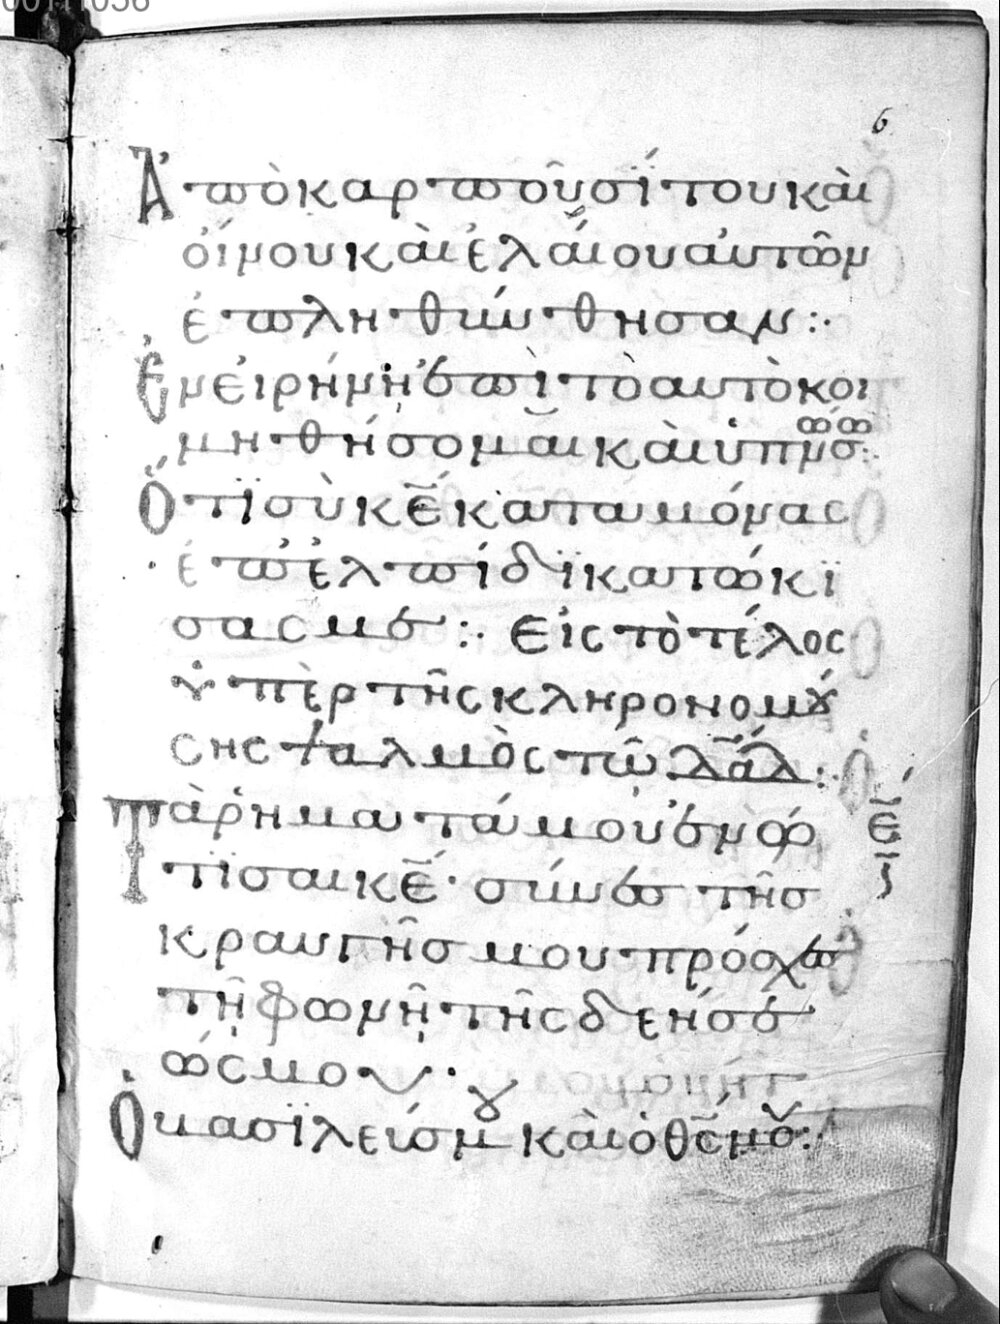 00111056
6
Ἀπὸ καρποῦ σί του καὶ
οἴνου καὶ ἐλαίου αὐτῶν
ἐπληθύνθησαν :·
Ἐν εἰρήνῃ ἐπὶ τὸ αυτὸ κοι
μηθήσομαι καὶ ὑπνώσω :·
Ὅτι σὺ κε̅ καταμόνας
ἐπ' ἐλπίδϊ κατώκϊ
σας με :· Εἰς τὸ τέλος
ὑπὲρ τῆς κληρονομȣ́
σης ψαλμὸς τῷ δᾱδ :·
Τὰ ῥήματά μου ἐνώ
ε̅
τϊσαι κε̅· σύνες τῆσ
ῑ
κραυγῆσ μου πρόσχες
τῇ φωνῇ τῆς δεήσε
ώς μου ·
Ὁ βασϊλεύσ μȣ καὶ ὁ θς̅ μȣ :·